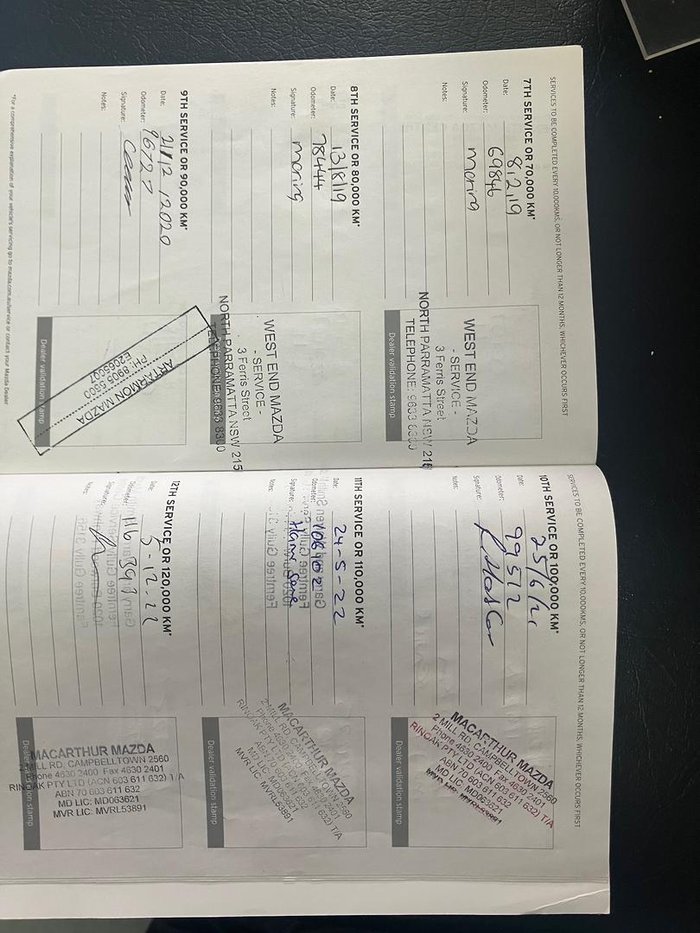 SERVICES TO BE COMPLETED EVERY 10,000KMS, OR NOT LONGER THAN 12 MONTHS, WHICHEVER OCCURS FIRST
7TH SERVICE OR 70,000 KM*
Date: 8,2,19
Odometer: 69846
Signature:
Notes:
WEST END MAZDA
- SERVICE -
3 Ferris Street
NORTH PARRAMATTA NSW
TELEPHONE: 9633
Dealer validation stamp
8TH SERVICE OR 80,000 KM*
Date: 13/8/19
Odometer: 78444
Signature:
Notes:
WEST END MAZDA
- SERVICE -
3 Ferris Street
NORTH PARRAMATTA NSW
TELEPHONE:
9TH SERVICE OR 90,000 KM*
Date: 21/12/2020
Odometer: 96727
Signature:
Notes:
ARTARMON MAZDA
Dealer validation stamp
*For a comprehensive explanation of your vehicle's servicing go to mazda.com.au/service or contact your Mazda Dealer
SERVICES TO BE COMPLETED EVERY 10,000KMS, OR NOT LONGER THAN 12 MONTHS, WHICHEVER OCCURS FIRST
10TH SERVICE OR 100,000 KM*
Date: 25/6/21
Odometer: 99512
Signature:
Notes:
MACARTHUR MAZDA
2 MILL RD, CAMPBELLTOWN 2560
Phone 4630 2400 Fax 4630 2401
RINOAK PTY LTD (ACN 603 611 632) T/A
ABN 70 603 611 632
MD LIC: MD063621
MVR LIC: MVRL53891
Dealer validation stamp
11TH SERVICE OR 110,000 KM*
Date: 24-5-22
Odometer:
Signature:
Notes:
MACARTHUR MAZDA
2 MILL RD, CAMPBELLTOWN 2560
Phone 4630 2400 Fax 4630 2401
RINOAK PTY LTD (ACN 603 611 632) T/A
ABN 70 603 611 632
MD LIC: MD063621
MVR LIC: MVRL53891
Dealer validation stamp
12TH SERVICE OR 120,000 KM*
Date: 5-12-22
Odometer:
Signature:
Notes:
MACARTHUR MAZDA
2 MILL RD, CAMPBELLTOWN 2560
Phone 4630 2400 Fax 4630 2401
RINOAK PTY LTD (ACN 603 611 632) T/A
ABN 70 603 611 632
MD LIC: MD063621
MVR LIC: MVRL53891